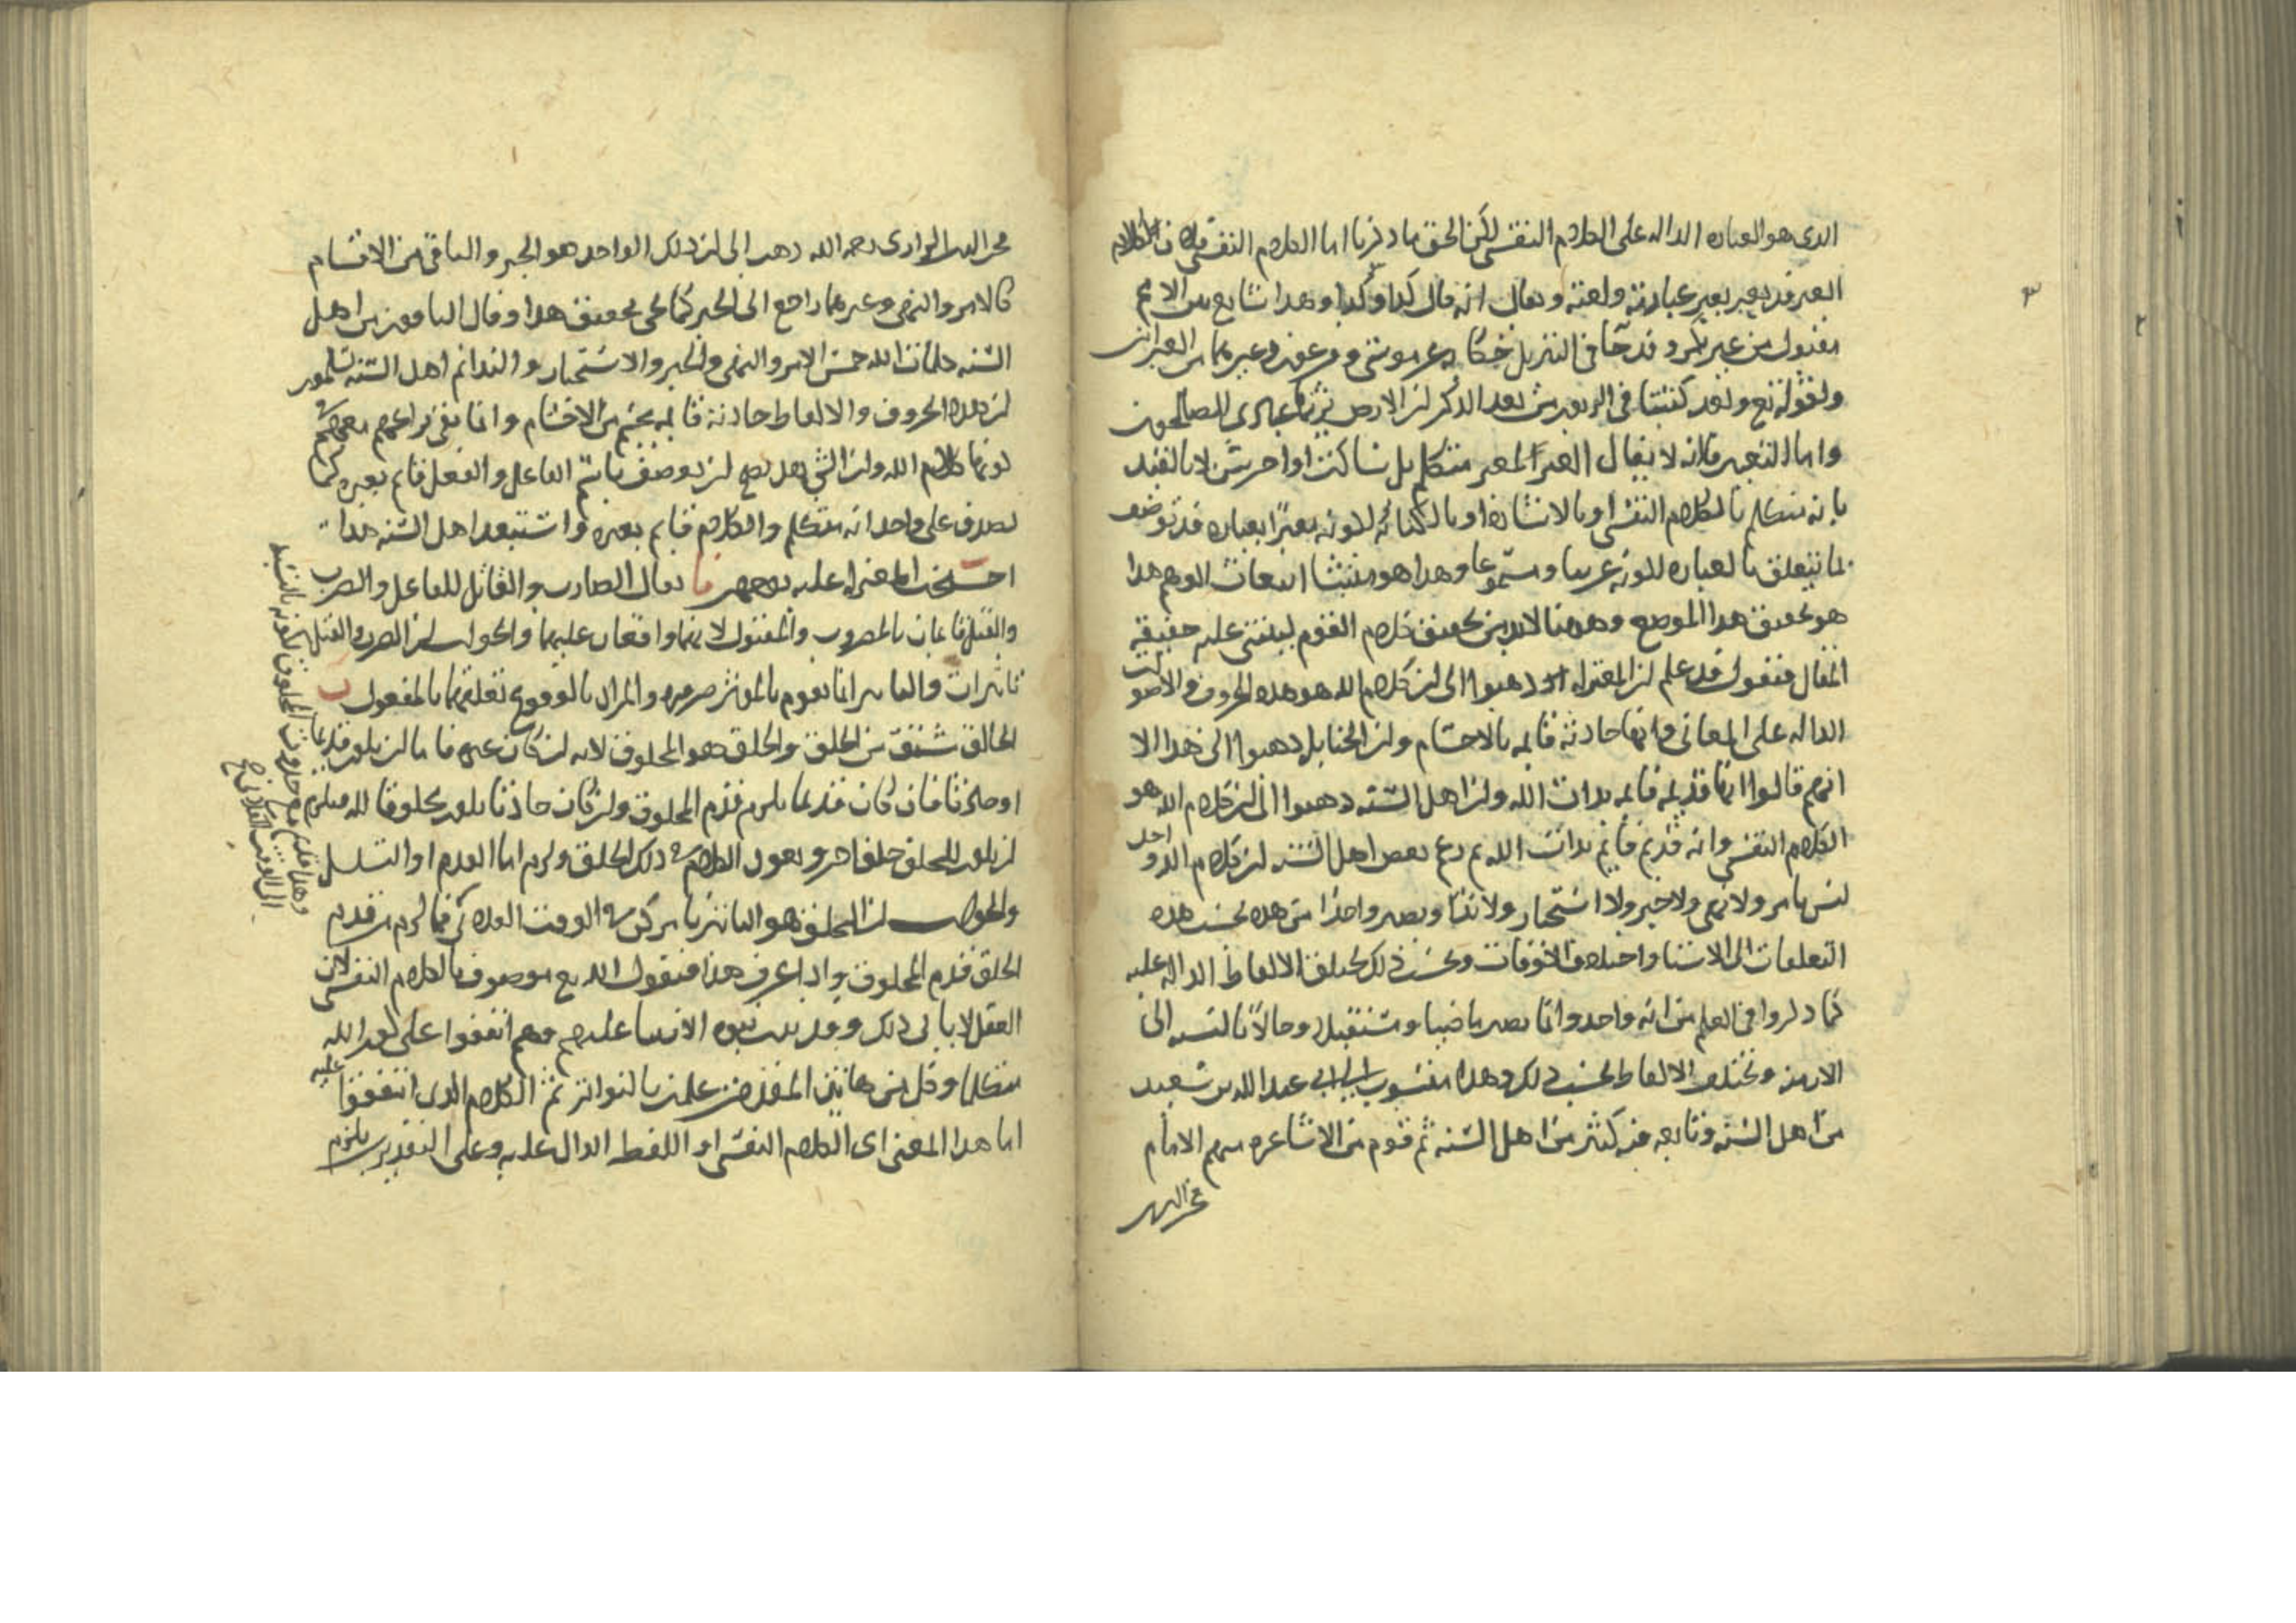 الذى هو العباره الداله على الكلام النفسى لكن الحق ما ذكرنا اما الكلام النفسى فلان الكلام
العبرى قد يعبر بغير عبارته ولغته ويقال انه قال كذا وكذا وهذا شايع بين الامم
مقبول من غير نكر وقد جا فى التنزيل حكاية عن موسى وفرعون وغيرهما من العبرانى
ولقوله تع ولقد كتبنا فى الزبور من بعد الذكر ان الارض يرثها عبادى الصالحون
واما التعبير فلانه لا يقال الغير المعبر متكلم بل ساكت او اخرس الا بالتقييد
بانه متكلم بالكلام النفسى او بالاشارة او بالكتابة لكونه معبرا بعباره قد توصف
بما يتعلق بالعباره لكونه عربيا ومسموعا وهذا هو منشا انبعاث الوهم هذا
هو تحقيق هذا الموضع وههنا لابد من تحقيق كلام القوم ليبتنى عليه حقيقة
المقال فنقول قد علم ان المعتزله ذهبوا الى ان كلام الله هو هذه الحروف والاصوات
الداله على المعانى وانها حادثة قايمه بالاجسام وان الحنابله ذهبوا الى هذا الا
انهم قالوا انها قديمة قايمه بذات الله وان اهل السنه ذهبوا الى ان كلام الله هو
الكلام النفسى وانه قديم قايم بذات الله ثم زعم بعض اهل السنه ان كلام الله واحد
ليس بامر ولا نهى ولا خبر ولا استخبار ولا ندا ويصير واحدا من هذه بحسب هذه
التعلقات الى الاشيا واختلاف الاوقات وبحسب ذلك تختلف الالفاظ الداله عليه
كما ذكروا فى العلم من انه واحد وانما يصير ماضيا ومستقبلا وحالا بالنسبه الى
الازمنه وتختلف الالفاظ بحسب ذلك وهذا منسوب الى ابى عبد الله بن سعيد
من اهل السنه وتابعه فيه كثير من اهل السنه ثم قوم من الاشاعره منهم الامام
فخر الدين
فخر الدين الرازى رحمه الله ذهب الى ان ذلك الواحد هو الخبر والباقى من الاقسام
كالامر والنهى وغيرهما راجع الى الخبر كما يجى تحقيق هذا وقال الباقون من اهل
السنه كلمات الله خمس الامر والنهى والخبر والاستخبار والندا ثم اهل السنه يسلمون
ان هذه الحروف والالفاظ حادثة قايمه بجسم من الاجسام وانما بقى نزاعهم معهم فى
كونها كلام الله وان الشى هل يصح ان يوصف باسم الفاعل والفعل قايم بغيره كما
يصدق على واحد انه متكلم والكلام قايم بغيره واستبعد اهل السنه هذا
احتجت المعتزله عليه بوجهين ا يقال الضارب والقاتل للفاعل والضرب
والقتل قايمان بالمضروب والمقتول لانهما واقعان عليهما والجواب ان الضرب والقتل
تاثيرات والتاثير انما يقوم بالموثر ضروره والمراد بالوقوع تعلقهما بالمفعول ب
الخالق مشتق من الخلق والخلق هو المخلوق لانه ان كان غيره فاما ان يكون قديما
او حادثا فان كان قديما يلزم قدم المخلوق وان كان حادثا يكون مخلوقا لله فيلزم
ان يكون للخلق خلق اخر ويعود الكلام فى ذلك الخلق ولزم اما القدم او التسلسل
والجواب ان الخلق هو التاثير بامر كن فى الوقت الفلانى فما لزم من قدم
الخلق قدم المخلوق واذا عرف هذا فنقول الله تع موصوف بالكلام النفسى لان
العقل لا يابى ذلك وقد ثبت نبوه الانبيا عليهم وهم اتفقوا على كون الله
متكلما وكل من هاتين المقدمتين علمت بالتواتر ثم الكلام الذى اتفقوا عليه
اما هذا المعنى اى الكلام النفسى او اللفظ الدال عليه وعلى التقديرين يلزم
وهذا قديم مع حدوث المخلوق لكونه بالنسبة
الى الوقت الفلانى صح
٣